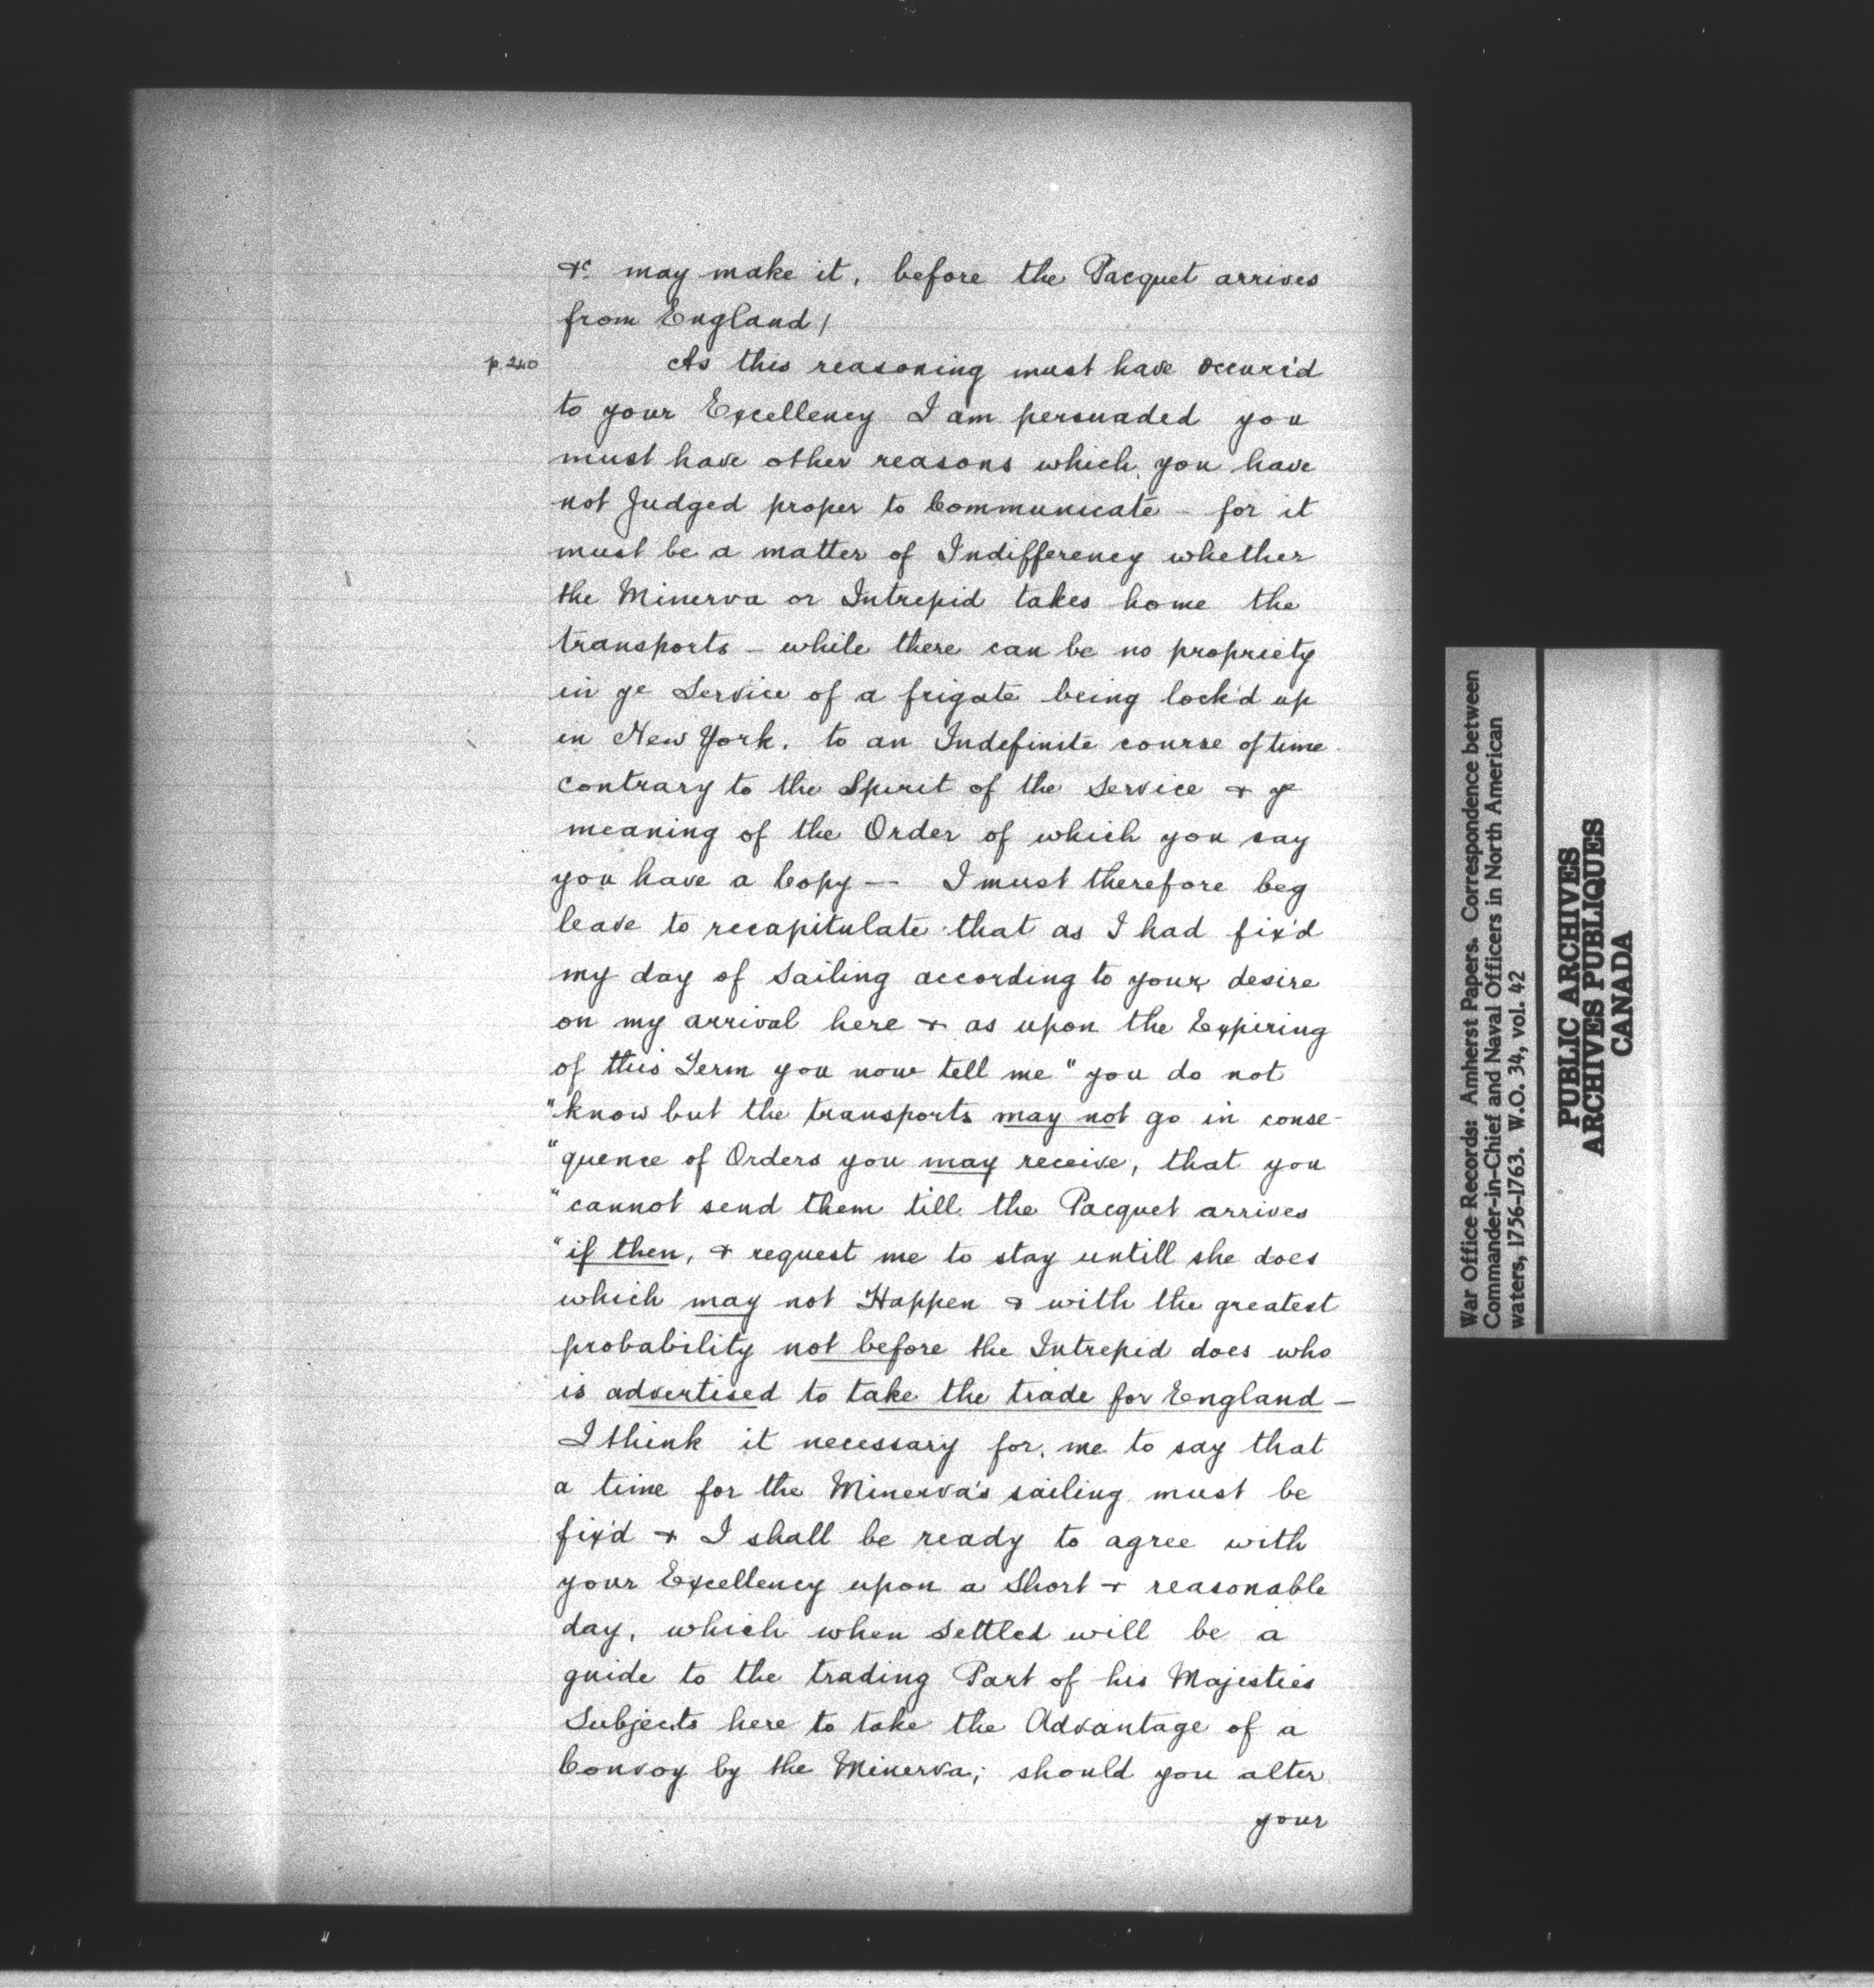 &c may make it, before the Pacquet arrives
from England/
p. 240
As this reasoning must have occur'd
to your Excellency I am persuaded you
must have other reasons which you have
not Judged proper to Communicate - for it
must be a matter of Indifferency whether
the Minerva or Intrepid takes home the
transports - while there can be no propriety
in ye Service of a frigate being lock'd up
in New York, to an Indefinite course of time
contrary to the Spirit of the Service & ye
meaning of the Order of which you say
you have a Copy -- I must therefore beg
leave to recapitulate that as I had fix'd
my day of Sailing according to your desire
on my arrival here & as upon the Expiring
of this Term you now tell me "you do not
"know but the transports may not go in conse-
"quence of Orders you may receive, that you
"cannot send them till the Pacquet arrives
"if then, & request me to stay untill she does
which may not Happen & with the greatest
probability not before the Intrepid does who
is advertised to take the trade for England -
I think it necessary for me to say that
a time for the Minerva's sailing must be
fix'd & I shall be ready to agree with
your Excellency upon a Short & reasonable
day, which when Settled will be a
guide to the trading Part of his Majesties
Subjects here to take the Advantage of a
Convoy by the Minerva; should you alter
your
War Office Records: Amherst Papers. Correspondence between
Commander-in-Chief and Naval Officers in North American
waters, 1756-1763. W.O. 34, vol. 42
PUBLIC ARCHIVES
ARCHIVES PUBLIQUES
CANADA